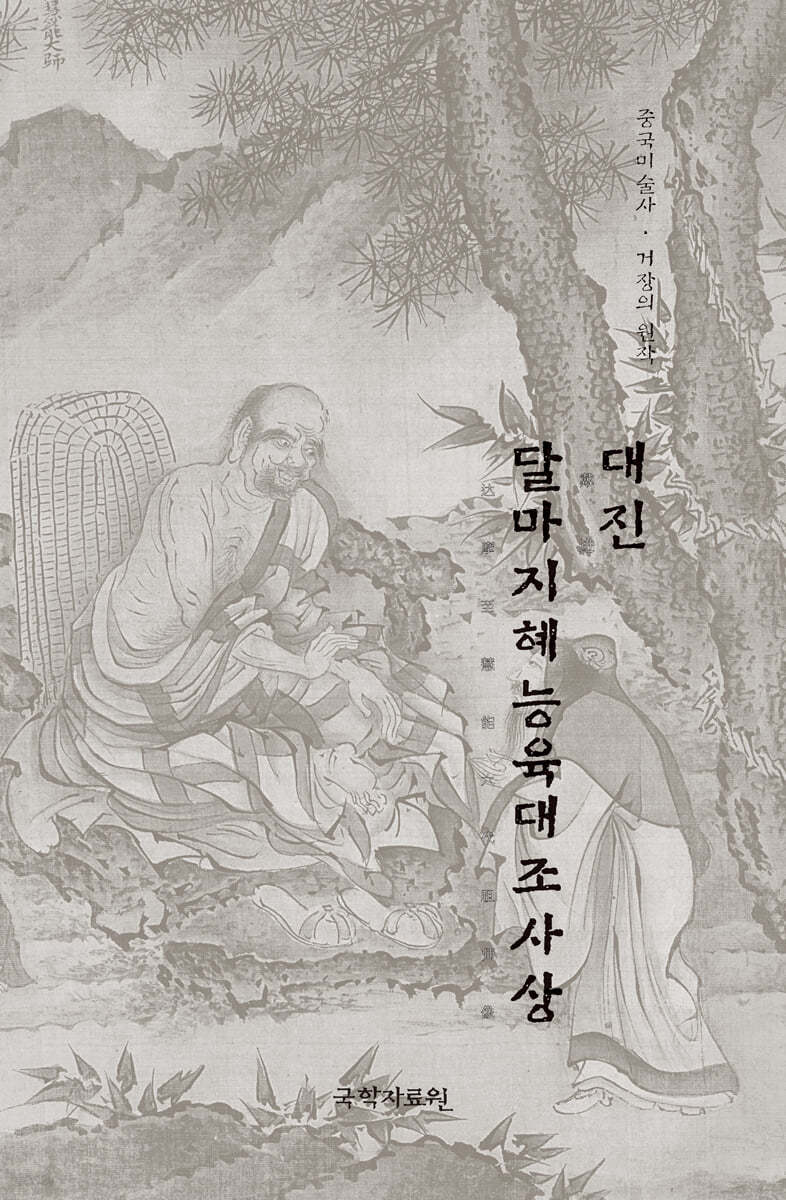 중국미술사 · 거장의 원작
대진
戴进
달마지혜능육대조사상
达摩至慧能六代祖师像
能大師
국학자료원